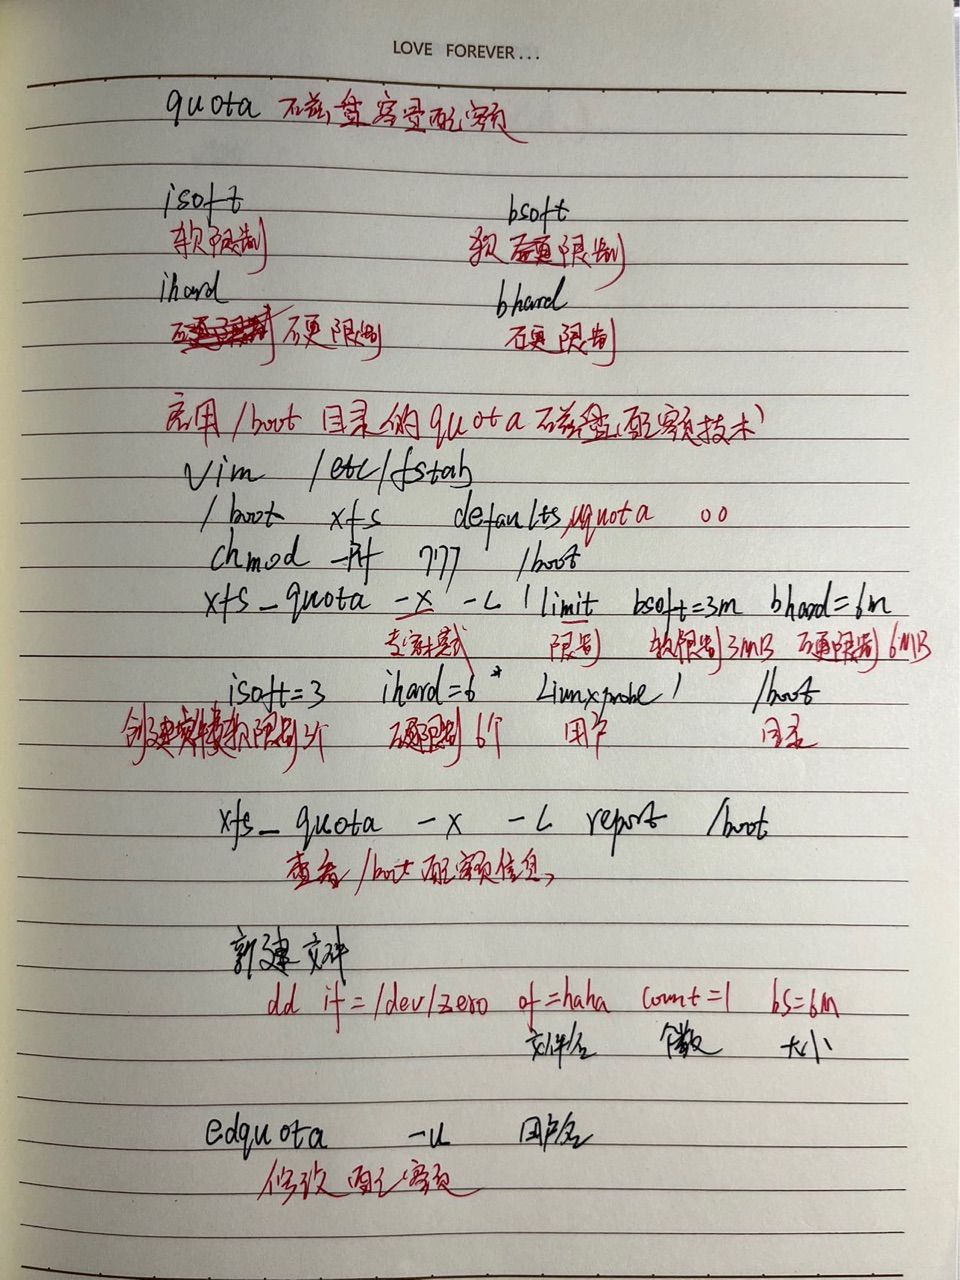 LOVE FOREVER...
quota 磁盘容量配额
isoft bsoft
软限制 软硬限制
ihard bhard
硬限制 硬限制
启用 /boot 目录的quota磁盘配额技术
vim /etc/fstab
/boot xfs defaults,uquota 00
chmod 777 /boot
xfs_quota -x -c 'limit bsoft=3m bhard=6m
专家模式 限制 软限制3MB 硬限制6MB
isoft=3 ihard=6 Linuxprobe' /boot
创建文件数软限制3个 硬限制6个 用户 目录
xfs_quota -x -c report /boot
查看/boot配额信息,
新建文件
dd if=/dev/zero of=haha count=1 bs=6m
文件名 个数 大小
edquota -u 用户名
修改配额